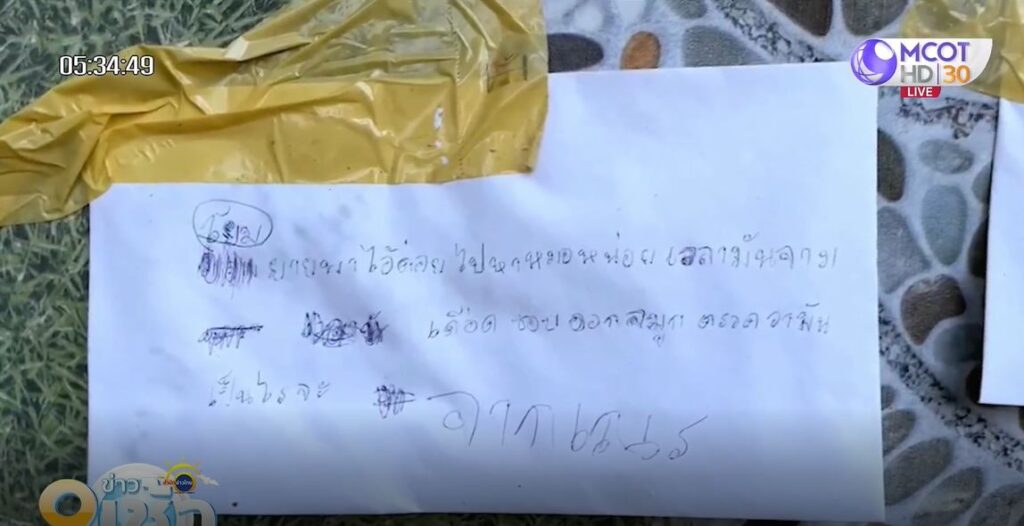 05:34:49
MCOT
HD 30
LIVE
โยม
ยายพาไอ้ต๋อยไปหาหมอหน่อย เวลามันจาม
เลือด ชอบ ออกจมูก ตรวด ว่ามัน
เป็นไรจะ
จากเนน
ข่าว